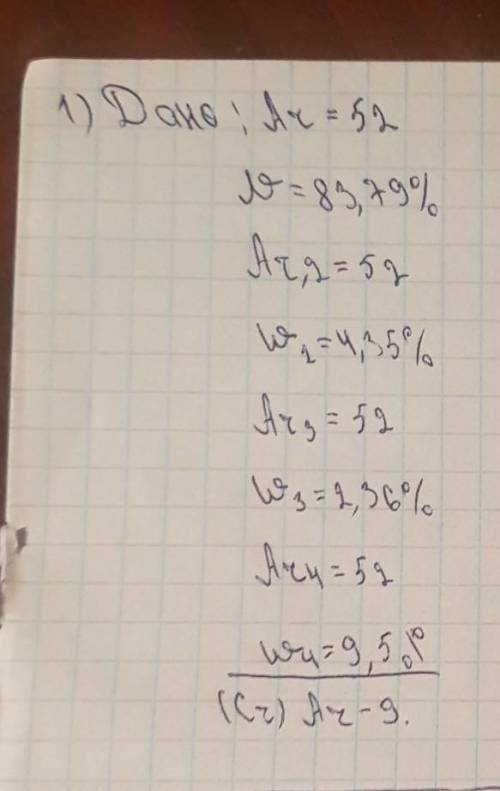 1) Дано: Ar = 52
W = 83,79%
Ar,2 = 52
W2 = 4,35%
Ar3 = 52
W3 = 2,36%
Ar4 = 52
W4 = 9,5%
(Cr) Ar - ?.